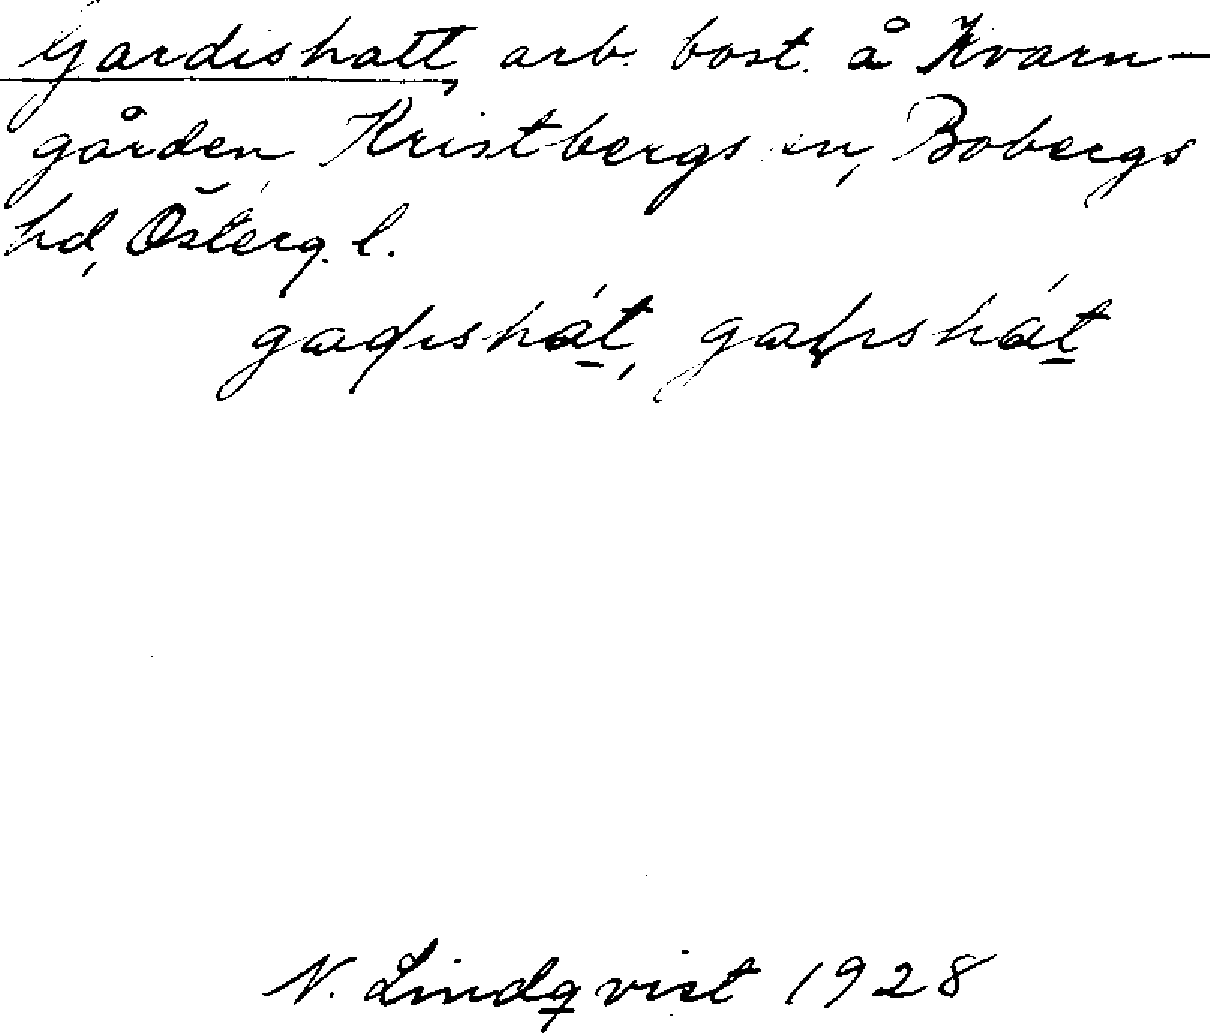 Gardishatt, arb. bost. å Kvarn-
gården Kristbergs sn, Bobergs
hd, Österg. l.
N. Lindqvist 1928